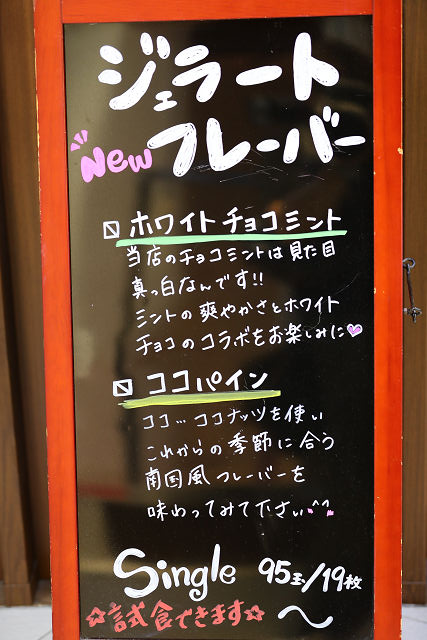 ジェラート
New フレーバー
ホワイトチョコミント
当店のチョコミントは見た目
真っ白なんです!!
ミントの爽やかさとホワイト
チョコのコラボをお楽しみに♥
ココパイン
ココ…ココナッツを使い
これからの季節に合う
南国風フレーバーを
味わってみて下さい^^
Single 95玉/19枚
☆試食できます☆ 〜